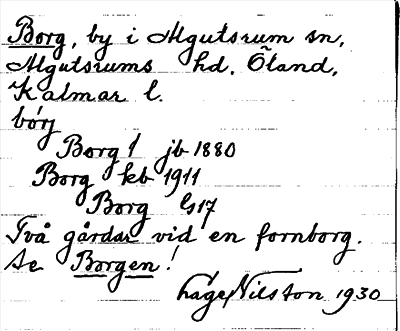 Borg, by i Algutsrum sn,
Algutsrums hd. Öland,
Kalmar l.
bórj
Borg 1 jb 1880
Borg kb 1911
Borg G17
Två gårdar vid en fornborg.
Se Borgen!
Låge Nilston 1930